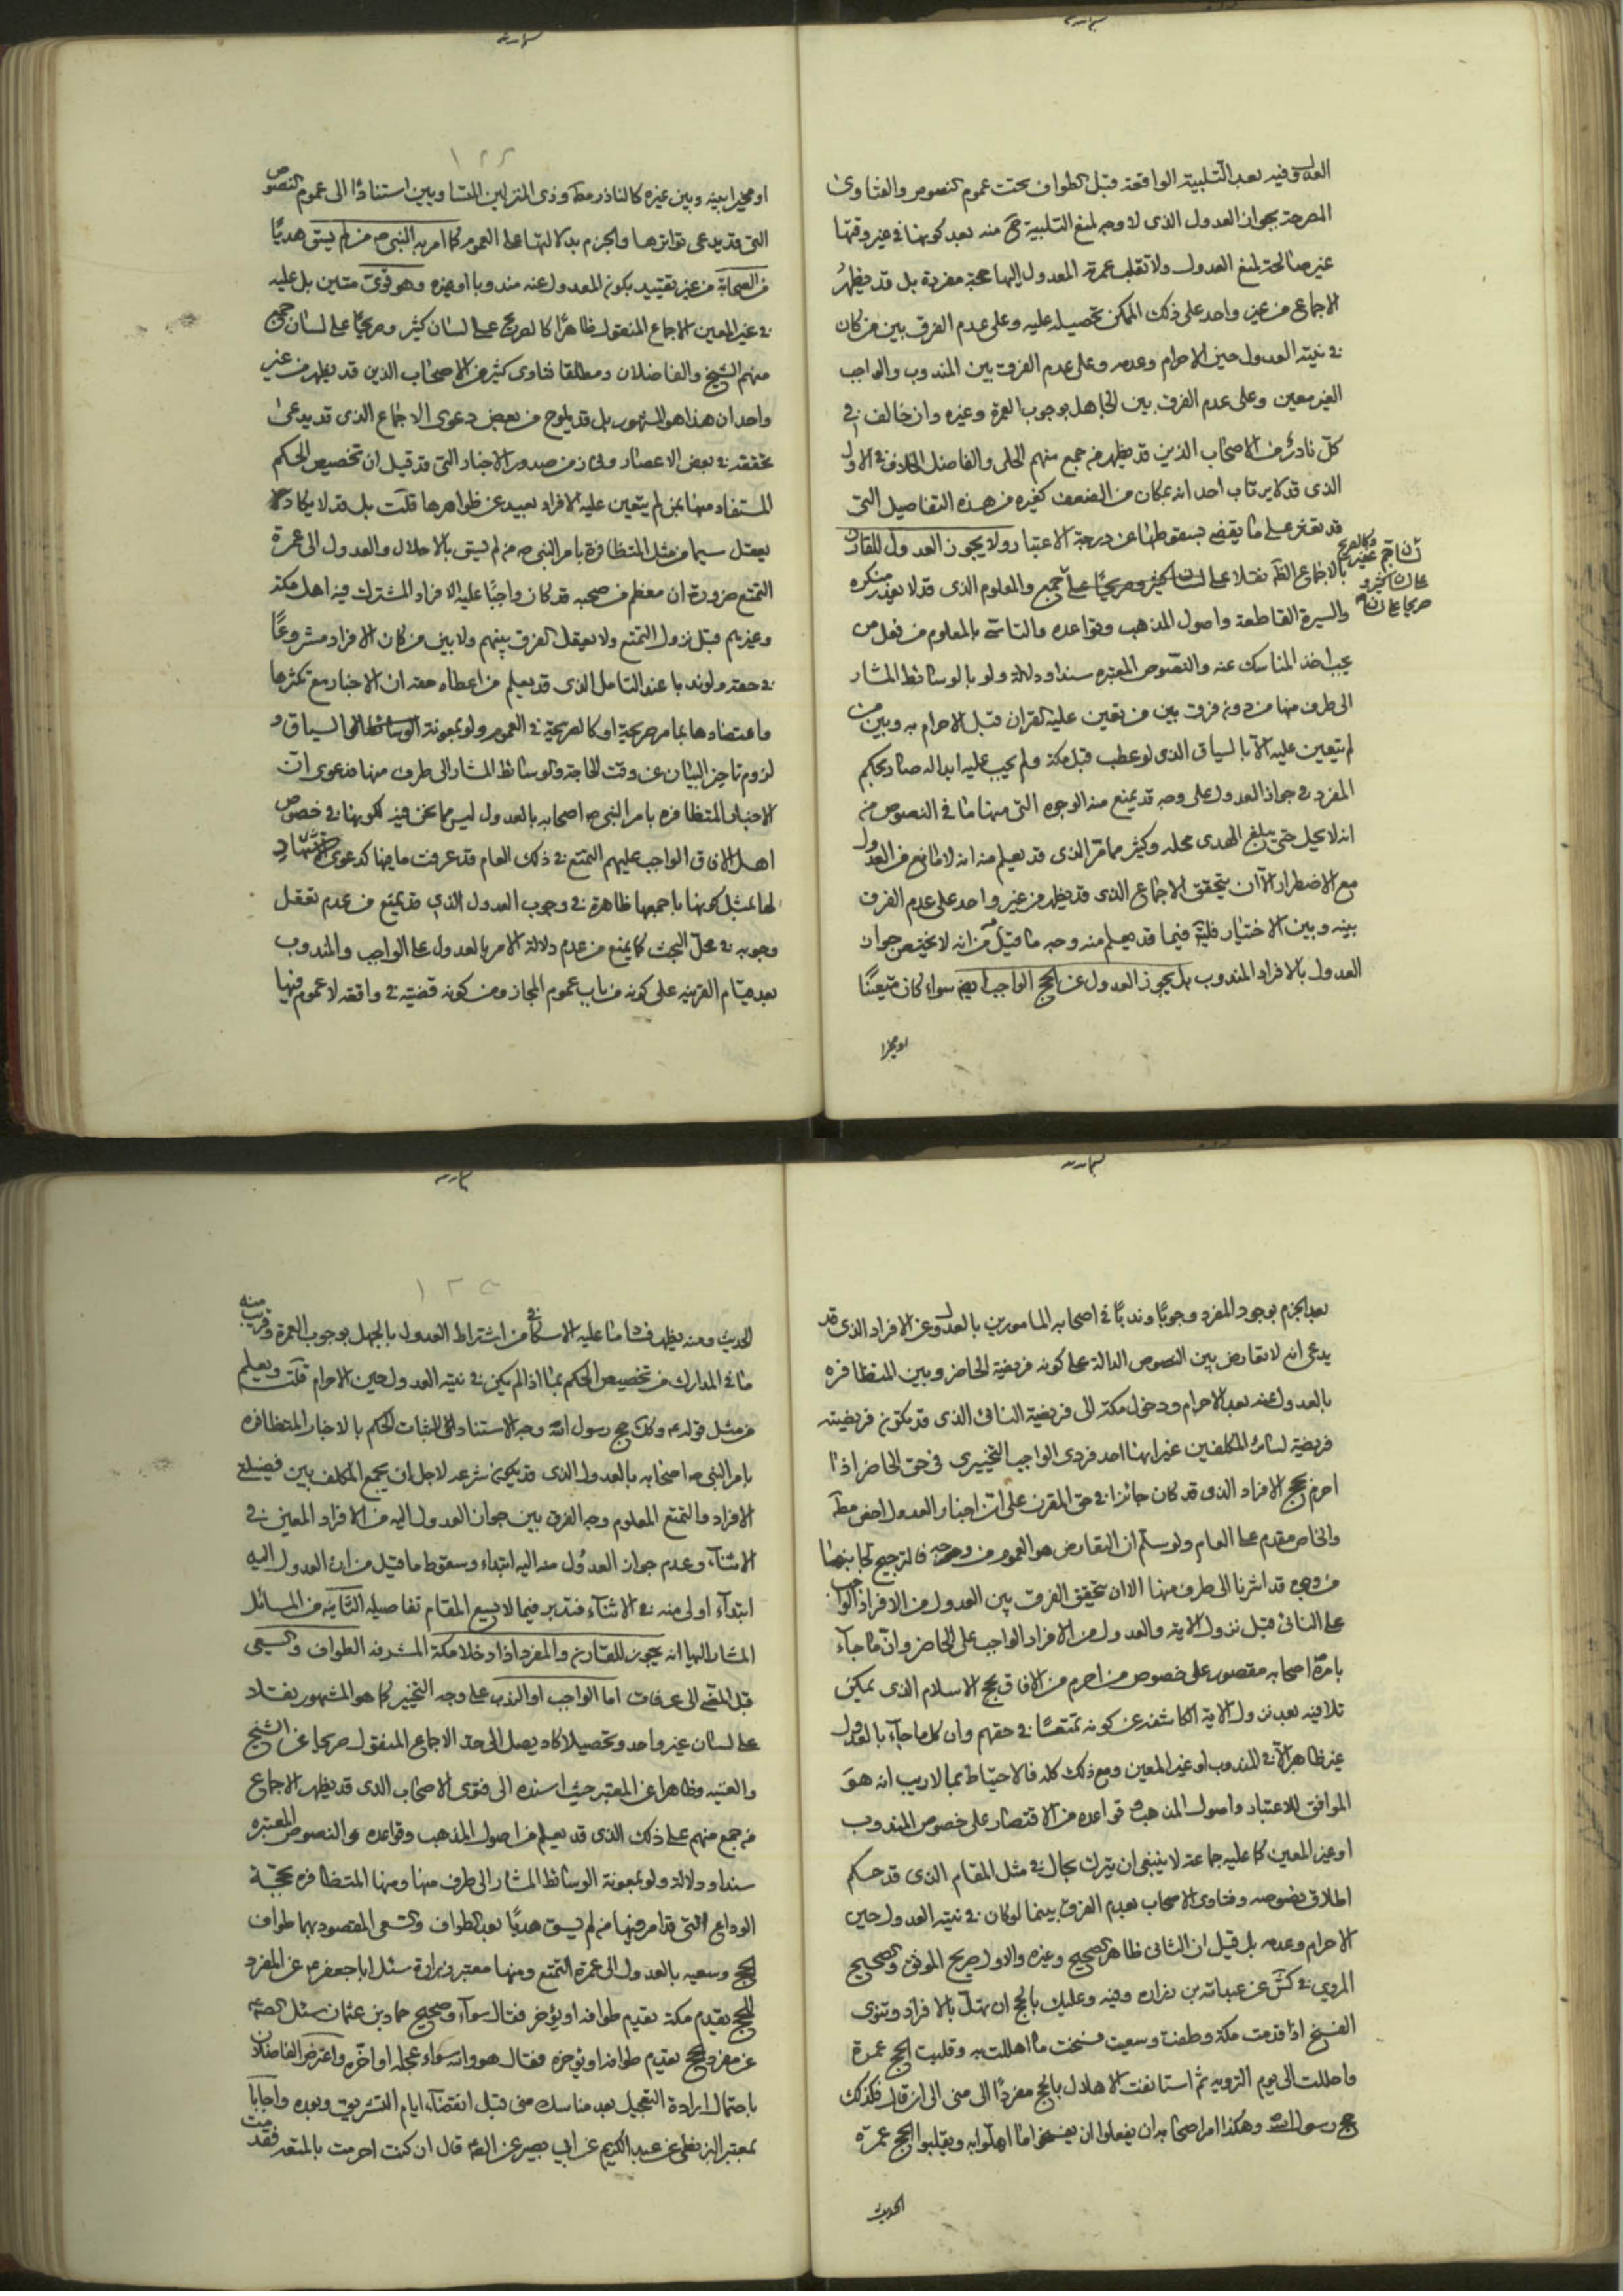 العدول وفيه بعد التلبية الواقعة قبل الطواف تحت عموم النصوص والفتاوى
المصرحة بجواز العدول الذى لا وجه لمنع التلبية ح منه بعد كونها في غير وقتها
غير صالحة لمنع العدول ولا تقلب عمرة المعدول اليها حجة مفردة بل قد يظهر
الاجماع من غير واحد على ذلك الممكن تحصيله عليه وعلى عدم الفرق بين من كان
في نيته العدول حين الاحرام وعدمه وعلى عدم الفرق بين المندوب والواجب
الغير معين وعلى عدم الفرق بين الجاهل بوجوب العمرة وغيره وان خالف في
كل نادر من الاصحاب الذين قد يظهر من جمع منهم الحلى والفاضل الخلاف في الاول
الذى قد لا يرتاب احد انه بمكان من الضعف كغيره من هذه التفاصيل التى
قد تعثر على ما يقضى بسقوطها عن درجة الاعتبار ولا يجوز العدول للقارن
بالاجماع نقلا على لسان كثير وصريحا على جميع والمعلوم الذى قد لا يعذر منكره
والسيرة القاطعة واصول المذهب وقواعده والتاسى بالمعلوم من فعل من
يجب اخذ المناسك عنه والنصوص المعتبره سندا ودلالة ولو بالوسائط المشار
الى طرف منها من دون فرق بين من تعين عليه القران قبل الاحرام به وبين من
لم يتعين عليه الا بالسياق الذى لو عطب قبل مكة ولم يجب عليه ابداله صار بحكم
المفرد في جواز العدول على وجه قد يمنع منه الوجوه التى منها ما في النصوص من
انه لا يحل حتى يبلغ الهدى محله وكثير مما مر الذى قد يعلم منه انه لا مانع من العدول
مع الاضطرار الا ان يتحقق الاجماع الذى قد يظهر من غير واحد على عدم الفرق
بينه وبين الاختيار فليتم فيما قد يعلم منه وجه ما قيل من انه لا يختص جواز
العدول بالافراد المندوب بل يجوز العدول عن الحج الواجب ايضا سواء كان متعينا
او مخيرا
او مخيرا بينه وبين غيره كالناذر مطلقا وذى المنزلين المتساويين استنادا الى عموم النصوص
التى قد يدعى تواترها والجزم بدلالتها على العموم كما امر به النبى ص من لم يسق هديا
من الصحابة من غير تقييد بكون المعدول عنه مندوبا او غيره وهو قوى متين بل عليه
في غير المعين الاجماع المنقول ظاهرا كالصريح على لسان كثير وصريحا على لسان جمع
منهم الشيخ والفاضلان ومطلقا فتاوى كثير من الاصحاب الذين قد يظهر من غير
واحد ان هذا هو المشهور بل قد يلوح من بعض دعوى الاجماع الذى قد يدعى
تحققه في بعض الاعصار وفى زمن صدور الاخبار التى قد قيل ان تخصيص الحكم
المستفاد منها بمن لم يتعين عليه الافراد بعيد عن ظواهرها قلت بل قد لا يكاد
يعقل سيما من مثل المتظافرة بامر النبى ص من لم يسق بالاحلال والعدول الى عمرة
التمتع ضرورة ان معظم من صحبه قد كان واجبا عليه الافراد المشترك فيه اهل مكة
وغيرهم قبل نزول التمتع ولا يعقل الفرق بينهم ولا بين من كان الافراد مشروعا
في حقه ولو ندبا عند التامل الذى قد يعلم من اعطاء حقه ان الاخبار مع تكثرها
واعتضادها بما مر صريحة او كالصريحة في العموم ولو بمعونة السياق و
لزوم تاخير البيان عن وقت الحاجة والوسائط المشار الى طرف منها فدعوى ان
الاخبار المتظافره بامر النبى ص اصحابه بالعدول ليس مما نحن فيه لكونها في خصوص
اهل الافاق الواجب عليهم التمتع في ذلك العام قد عرفت ما فيها كدعوى
لها بمثل كونها باجمعها ظاهرة في وجوب العدول الذى قد يمنع من عدم تعقل
وجوبه في محل البحث كما يمنع من عدم دلالة الامر بالعدول على الواجب والمندوب
بعد قيام القرينه على كونه من باب عموم المجاز ومن كونه قضية في واقعة لا عموم فيها
بعد الجزم بوجود المفرد وجوبا وندبا في اصحابه المامورين بالعدول عن الافراد الذى قد
يدعى انه لا تعارض بين النصوص الدالة على كونه فريضة الحاضر وبين المتظافره
بالعدول عنه بعد الاحرام ودخول مكة الى فريضة النائى الذى قد يكون فريضته
فريضة لسائر المكلفين غير انها احد فردى الواجب التخييرى في حق الحاضر اذا
احرم بحج الافراد الذى قد كان جائزا في حق المقرن على ان اخبار العدول اخص مطلقا
والخاص مقدم على العام ولو سلم ان التعارض هو العموم من وجه فالترجيح لجانبها
من وجوه قد اشرنا الى طرف منها الا ان تحقيق الفرق بين العدول من الافراد الواجب
على النائى قبل نزول الاية والعدول من الافراد الواجب على الحاضر وان ما جاء
بامره اصحابه مقصور على خصوص من احرم من الافاق بحج الاسلام الذى يمكن
تلافيه بعد نزول الاية الكاشفه عن كونه تمتعا في حقهم وان كل ما جاء بالعدول
غير ظاهر الا في المندوب او غير المعين ومع ذلك كله فالاحتياط بما لا ريب انه هو
الموافق للاعتبار واصول المذهب وقواعده من الاقتصار على خصوص المندوب
او غير المعين كما عليه جماعة لا ينبغى ان يترك بحال في مثل المقام الذى قد حكم
اطلاق نصوصه وفتاوى الاصحاب بعدم الفرق بينما لو كان في نيته العدول حين
الاحرام وعدمه بل قيل ان الثانى ظاهر الصحيح وغيره والاول صريح الموثق والصحيح
المروي في كش عن عبدالله بن زراره وفيه وعليك بالحج ان تهل بالافراد وتنوى
الفسخ اذا قدمت مكة وطفت وسعيت فسخت ما اهللت به وقلبت الحج عمرة
واحللت الى يوم الترويه ثم استانفت الاهلال بالحج مفردا الى منى الى ان قال فكذلك
حج رسول الله وهكذا امر اصحابه ان يفعلوا ان يفسخوا ما اهلوا به ويقلبوا الحج عمرة
الحديث
الحديث ومنه يظهر فساد ما عليه الاسكافى من اشتراط العدول بالجهل بوجوب العمرة وقريب منه
ما في المدارك من تخصيص الحكم بما اذا لم يكن في نيته العدول حين الاحرام قلت ويعلم
من مثل قوله ع وكذلك حج رسول الله وجه الاستناد الى اثبات الحكم بالاخبار المتظافره
بامر النبى ص اصحابه بالعدول الذى قد يكون شرعه لاجل ان يجمع المكلف بين فضيلتى
الافراد والتمتع المعلوم وجه الفرق بين جواز العدول اليه من الافراد المعين في
الاثناء وعدم جواز العدول منه اليه ابتداء وسقوط ما قيل من ان العدول اليه
ابتداء اولى منه في الاثناء فتدبر فيما لا يسع المقام تفاصيله الثانيه من المسائل
المشار اليها انه يجوز للقارن والمفرد اذا دخلا مكة المشرفه الطواف والسعى
قبل المضى الى عرفات اما الواجب او الندب على وجه التخيير كما هو المشهور نقلا
على لسان غير واحد وتحصيلا كاد يصل الى حد الاجماع المنقول صريحا عن الشيخ
والغنيه وظاهرا عن المعتبر حيث اسنده الى فتوى الاصحاب الذى قد يظهر الاجماع
من جمع منهم على ذلك الذى قد يعلم من اصول المذهب وقواعده والنصوص المعتبره
سندا ودلالة ولو بمعونة الوسائط المشار الى طرف منها ومنها المتظافره بحجة
الوداع التى قد امر فيها من لم يسق هديا بعد الطواف والسعى المقصود بهما طواف
الحج وسعيه بالعدول الى عمرة التمتع ومنها معتبر زرارة سئل ابا جعفر ع عن المفرد
للحج يقدم مكة يقدم طوافه او يؤخر فقال سواء وصحيح حماد بن عثمان سئل الصادق ع
عن مفرد الحج يقدم طوافه او يؤخره فقال هو والله سواء عجله او اخره واعترض الفاضلان
باحتمال ارادة التعجيل بعد مناسك منى قبل انقضاء ايام التشريق وبعده واجابا
بمعتبر البزنطى عن عبد الكريم عن ابي بصير عن الصادق ع قال ان كنت احرمت بالمتعة فقدمت